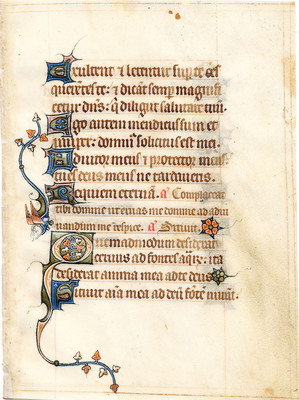 Exultent & letentur sup te oēs
querētes te: & dicāt semp magnifi
cetur dn̄s: q̄ diligūt salutare tuū.
Ego autem mendicus sum et
pauper: domin⁹ solicitus est mei.
Adiutor meus & protector meus
tu es deus meus ne tardaueris.
Requiem eternā. a Complaceat
tibi domine ut eruas me domine ad adiu
uandum me respice. a Sitiuit.
Quemadmodum desiderat
ceruus ad fontes aq̄ꝝ: ita
desiderat anima mea ad te deus
Sitiuit aīa mea ad deū fōtē uiuū.